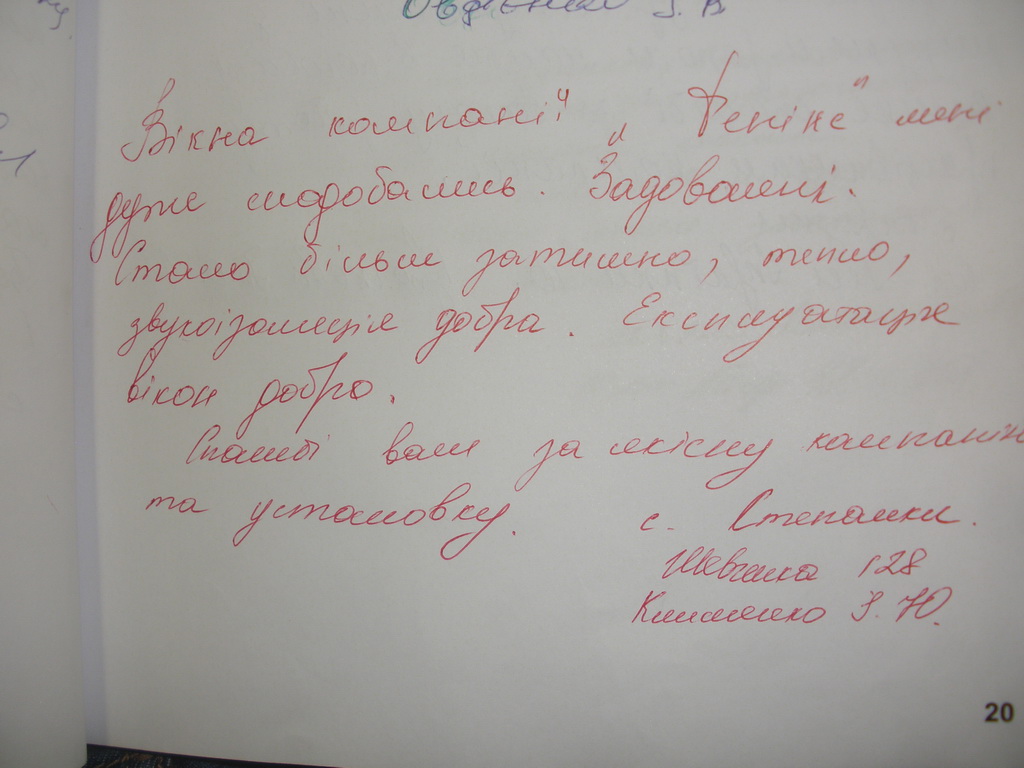 Вікна компанії „Фенікс" мені
дуже сподобались. Задоволені.
Стало більш затишно, тепло,
звукоізоляція добра. Експлуатація
вікон добра.
Спасибі вам за якісну компанію
та установку. с. Степанки.
Шевченка 128
Клименко І. Ю.
20